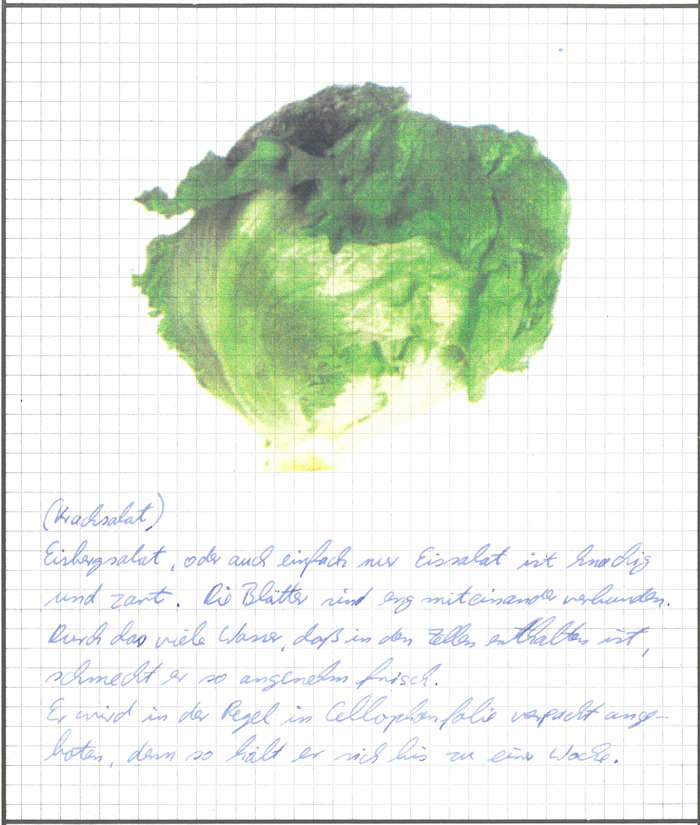 (Krachsalat)
Eisbergsalat, oder auch einfach nur Eissalat ist knackig
und zart. Die Blätter sind eng miteinander verbunden.
Durch das viele Wasser, daß in den Zellen enthalten ist,
schmeckt er so angenehm frisch.
Er wird in der Regel in Cellophanfolie verpackt ange-
boten, denn so hält er sich bis zu eine Woche.